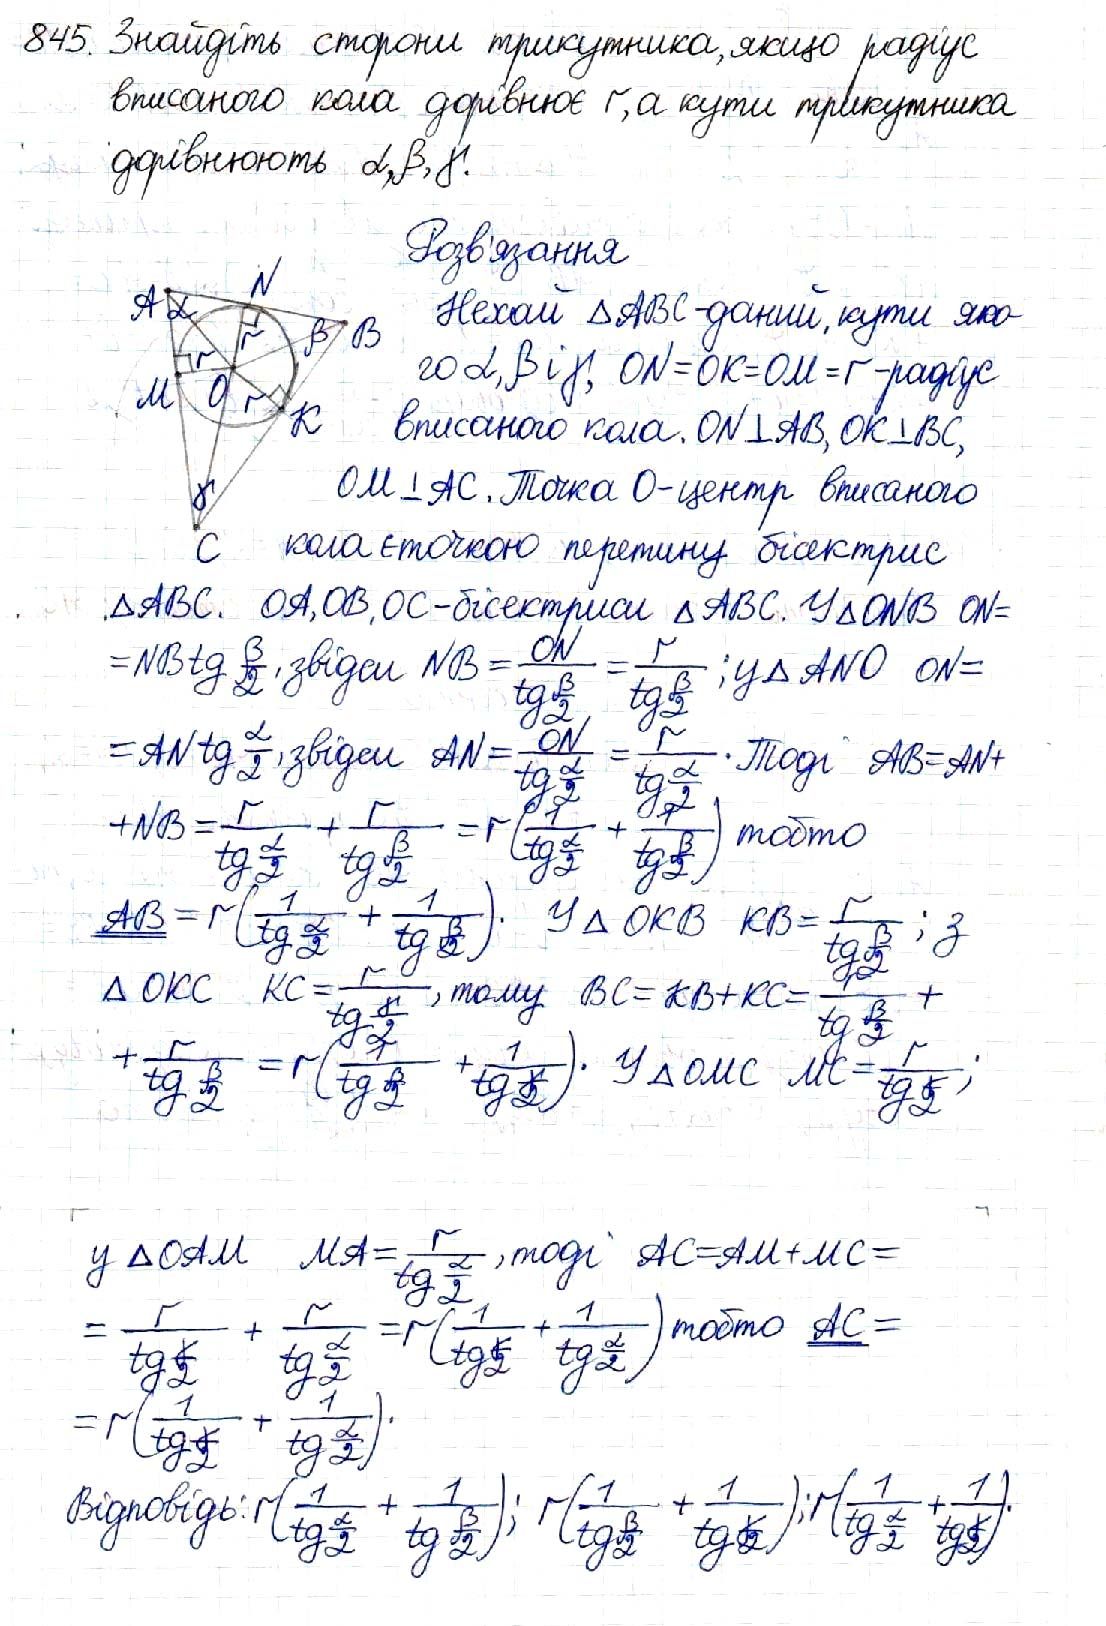 845. Знайдіть сторони трикутника, якщо радіус
вписаного кола дорівнює r, а кути трикутника
дорівнюють α, β, γ.
Розв'язання
A α N
β B
M O r r r K
γ
C
Нехай △ABC-даний, кути яко
го α, β і γ, ON=OK=OM=r-радіус
вписаного кола. ON⊥AB, OK⊥BC,
OM⊥AC. Точка O-центр вписаного
кола є точкою перетину бісектрис
△ABC. OA, OB, OC-бісектриси △ABC. У △ONB ON=
=NB tg β/2, звідси NB = ON/(tg β/2) = r/(tg β/2); у △ANO ON=
=AN tg α/2, звідси AN = ON/(tg α/2) = r/(tg α/2). Тоді AB=AN+
+NB = r/(tg α/2) + r/(tg β/2) = r(1/(tg α/2) + 1/(tg β/2)) тобто
AB = r(1/(tg α/2) + 1/(tg β/2)). У △OKB KB = r/(tg β/2); з
△OKC KC = r/(tg γ/2), тому BC = KB+KC = r/(tg β/2) +
+ r/(tg β/2) = r(1/(tg β/2) + 1/(tg γ/2)). У △OMC MC = r/(tg γ/2);
у △OAM MA = r/(tg α/2), тоді AC=AM+MC=
= r/(tg γ/2) + r/(tg α/2) = r(1/(tg γ/2) + 1/(tg α/2)) тобто AC =
= r(1/(tg γ/2) + 1/(tg α/2)).
Відповідь: r(1/(tg α/2) + 1/(tg β/2)); r(1/(tg β/2) + 1/(tg γ/2)); r(1/(tg α/2) + 1/(tg γ/2)).